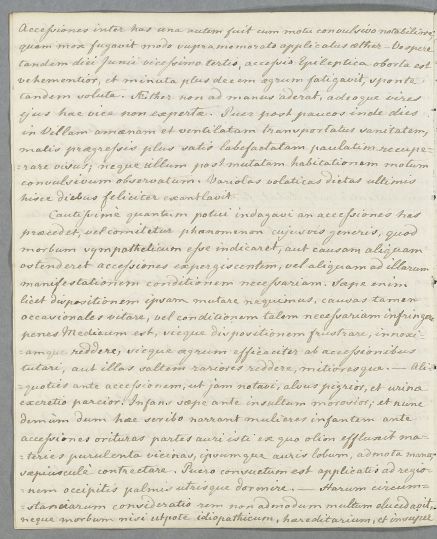 Accessiones inter has una autem fuit cum motu convulsivo notabiliore,
quam mox fugavit modo supra memorato applicatus æther. Vespere
tandem diei Junii vicessimo tertio, accessio Epileptica oborta est
vehementior, et minuta plus decem ægrum fatigavit, sponte
tandem soluta. Æther non ad manus aderat, adeoque vires
ejus hac vice non expertæ. Puer post paucos inde dies
in Vellam amænam et ventilatam transportatus sanitatem,
malis prægressis plus satis labefactatam paulatim recupe-
-rare visus; neque illum post mutatam habitationem motum
convulsivum observatum. Variolas volaticas dictas ultimis
hisce diebus feliciter exantlavit.
Cautissime quantum potui indagavi an accessiones has
præcedet, vel comitetur phænomenon cujusvis generis, quod
morbum sympatheticum esse indicaret, aut causam aliquam
ostenderet accessiones expergiscentem, vel aliquam ad illarum
manifestationem conditionem necessariam. Sæpe enim
licet dispositionem ipsam mutare nequimus, causas tamen
occasionales vitare, vel conditionem talem necessariam infringere
penes Medicum est, sicque dispositionem frustrare, innoxi-
-amque reddere, sicque ægrum efficaciter ab accessionibus
tutari, aut illas saltem rariores reddere, mitioresque. — Ali-
-quoties ante accessionem, ut jam notavi, alvus pigrior, et urinæ
excretio parcior. Infans sæpe ante insultum morosior; et nunc
demum dum hæc scribo narrant mulieres infantem ante
accessiones orituras partes auri isti ex quo olim effluxit ma-
-teries purulenta vicinas, ipsumque auris lobum, admota manu
sæpiusculè contrectare. Puero consuetum est applicatis ad regio-
-nem occipitis palmis utrisque dormire. — Harum circum-
-stantiarum consideratio rem non admodum multum elucidavit,
neque morbum nisi utpote idiopathicum, hæreditarium, et insuper